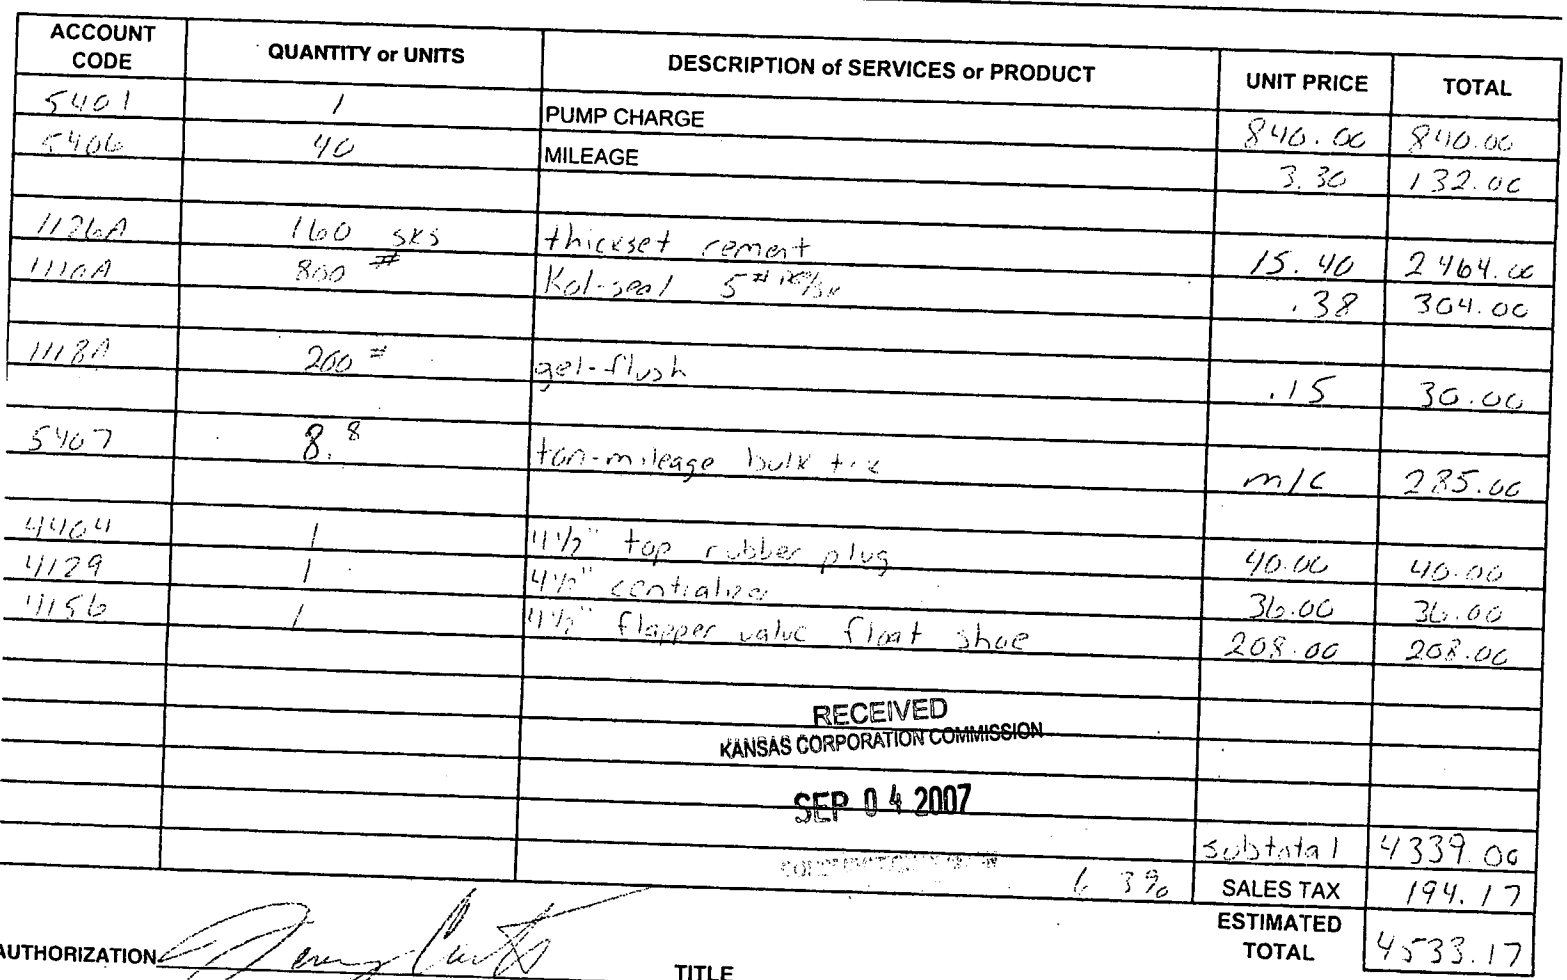 ACCOUNT CODE QUANTITY or UNITS DESCRIPTION of SERVICES or PRODUCT UNIT PRICE TOTAL
5401 1 PUMP CHARGE 840.00 840.00
5406 40 MILEAGE 3.30 132.00
1126A 160 sks thickset cement 15.40 2464.00
1110A 800 # Kol-seal 5# .38 304.00
1118A 200 # gel-flush .15 30.00
5407 8.8 ton-mileage bulk trk m/c 285.00
4404 1 4 1/2" top rubber plug 40.00 40.00
4129 1 4 1/2" centralizer 36.00 36.00
4156 1 4 1/2" flapper valve float shoe 208.00 208.00
RECEIVED
KANSAS CORPORATION COMMISSION
SEP 04 2007
subtotal 4339.00
6.3% SALES TAX 194.17
ESTIMATED TOTAL 4533.17
AUTHORIZATION TITLE